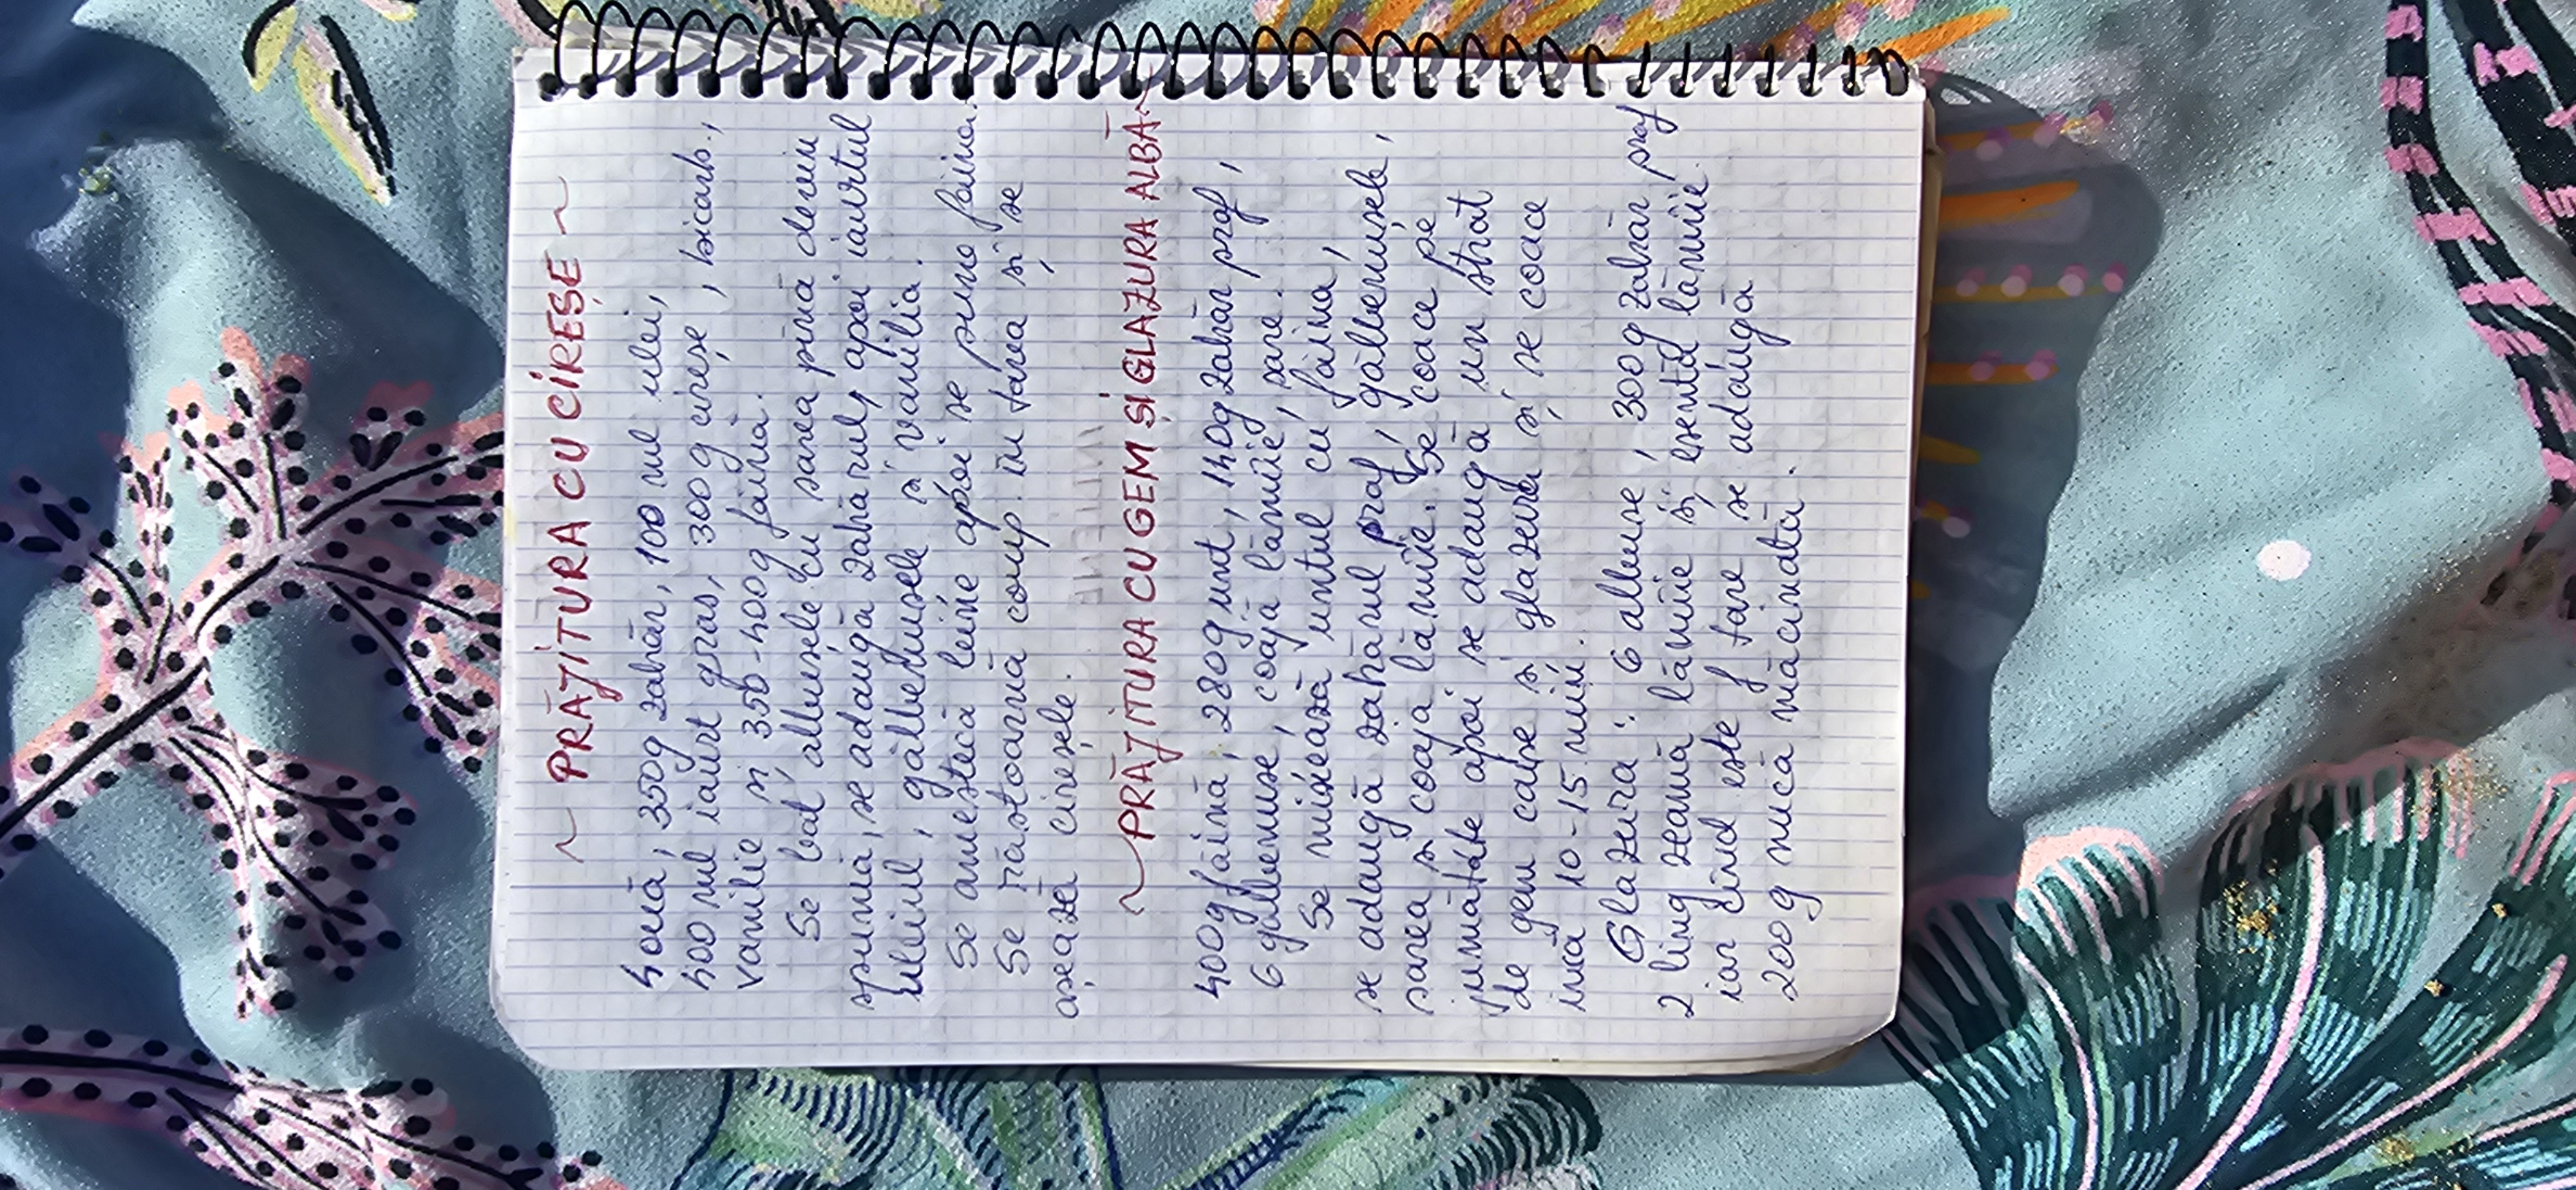 ~ PRĂJITURA CU CIREȘE ~
4 ouă, 350g zahăr, 100 ml ulei,
400 ml iaurt gras, 300 g cireșe, bicarb.,
vanilie și 350-400g făină.
Se bat albușele cu sarea pînă devin
spumă, se adaugă zahărul, apoi iaurtul
uleiul, gălbenușele și vanilia.
Se amestecă bine apoi se pune făina.
Se răstoarnă comp. în tava și se
așează cireșele.
~ PRĂJITURA CU GEM ȘI GLAZURA ALBĂ ~
400g făină, 280g unt, 140g zahăr praf,
6 gălbenușe, coajă lămîie, sare.
Se mixează untul cu făina,
se adaugă zahărul praf, gălbenușele,
sarea și coaja lămîie. Se coace pe
jumătate apoi se adaugă un strat
de gem caise și glazura și se coace
încă 10-15 min.
Glazura: 6 albușe, 300g zahăr praf
2 ling zeamă lămîie și esență lămîie
iar cînd este f tare se adaugă
200g nucă măcinată.